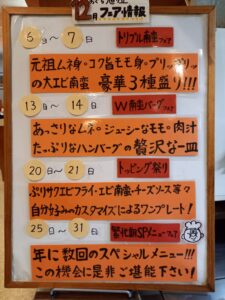 12月フェア情報
5日〜7日 トリプル南蛮フェア
元祖ムネ身・コク旨モモ身・プリップリッ
の大エビ南蛮 豪華3種盛り!!!
13日〜14日 W南蛮バーグフェア
あっさりなムネ。ジューシーなモモ。肉汁
たっぷりなハンバーグの贅沢な一皿
20日〜21日 トッピング祭り
ぷりサクエビフライ・エビ南蛮・チーズソース等々
自分好みのカスタマイズによるワンプレート!
25日〜31日 繁忙期SPメニューフェア
年に数回のスペシャルメニュー!!!
この機会に是非ご堪能下さい!